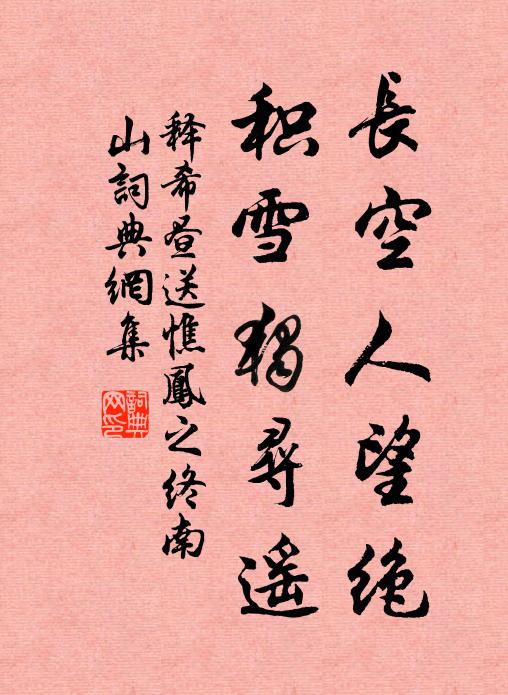 長空人望绝
积雪獨尋遥
释希昼送憔鳳之终南
山詞典網集
詞典网印